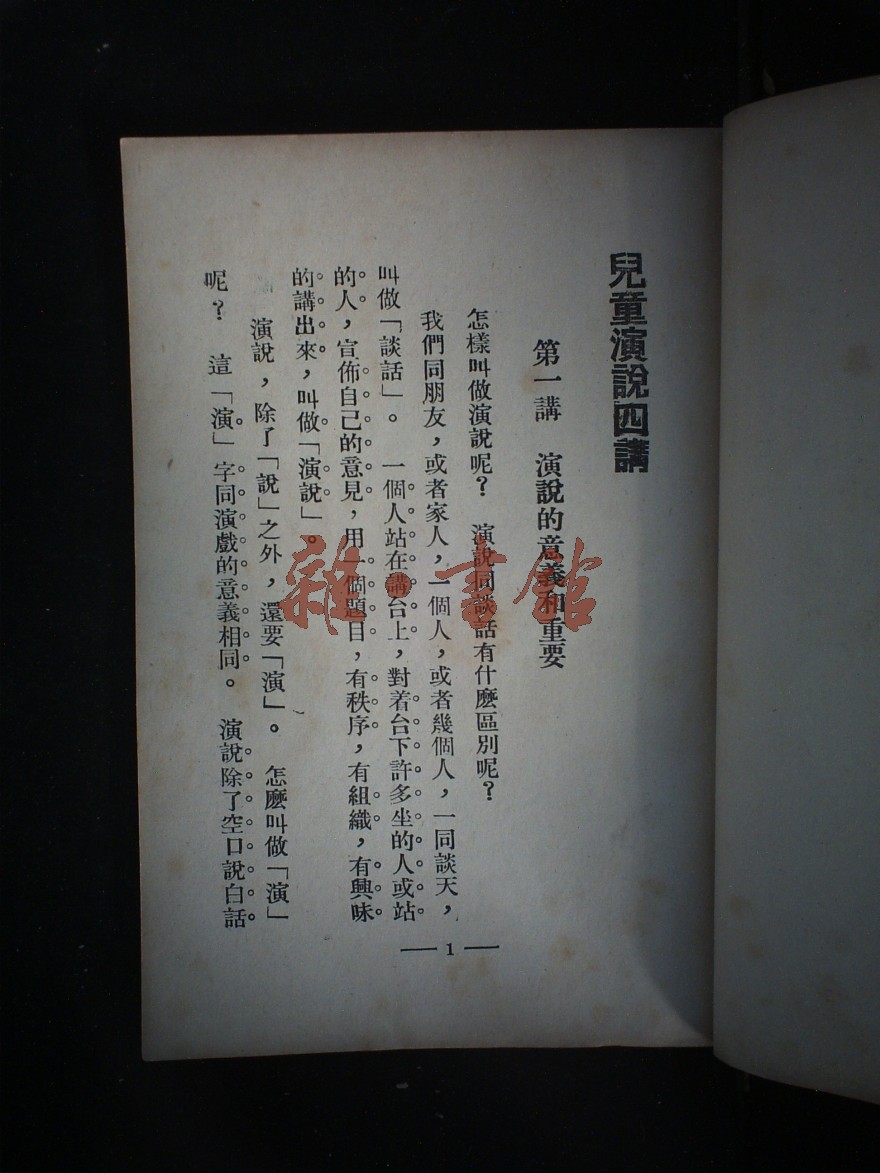 兒童演說四講
第一講　演說的意義和重要
怎樣叫做演說呢？　演說同談話有什麼區別呢？
我們同朋友，或者家人，一個人，或者幾個人，一同談天，
叫做「談話」。　一個人站在講台上，對着台下許多坐的人或站
的人，宣佈自己的意見，用一個題目，有秩序，有組織，有興味
的講出來，叫做「演說」。
演說，除了「說」之外，還要「演」。　怎麼叫做「演」
呢？　這「演」字同演戲的意義相同。　演說除了空口說白話
— 1 —
雜·書館